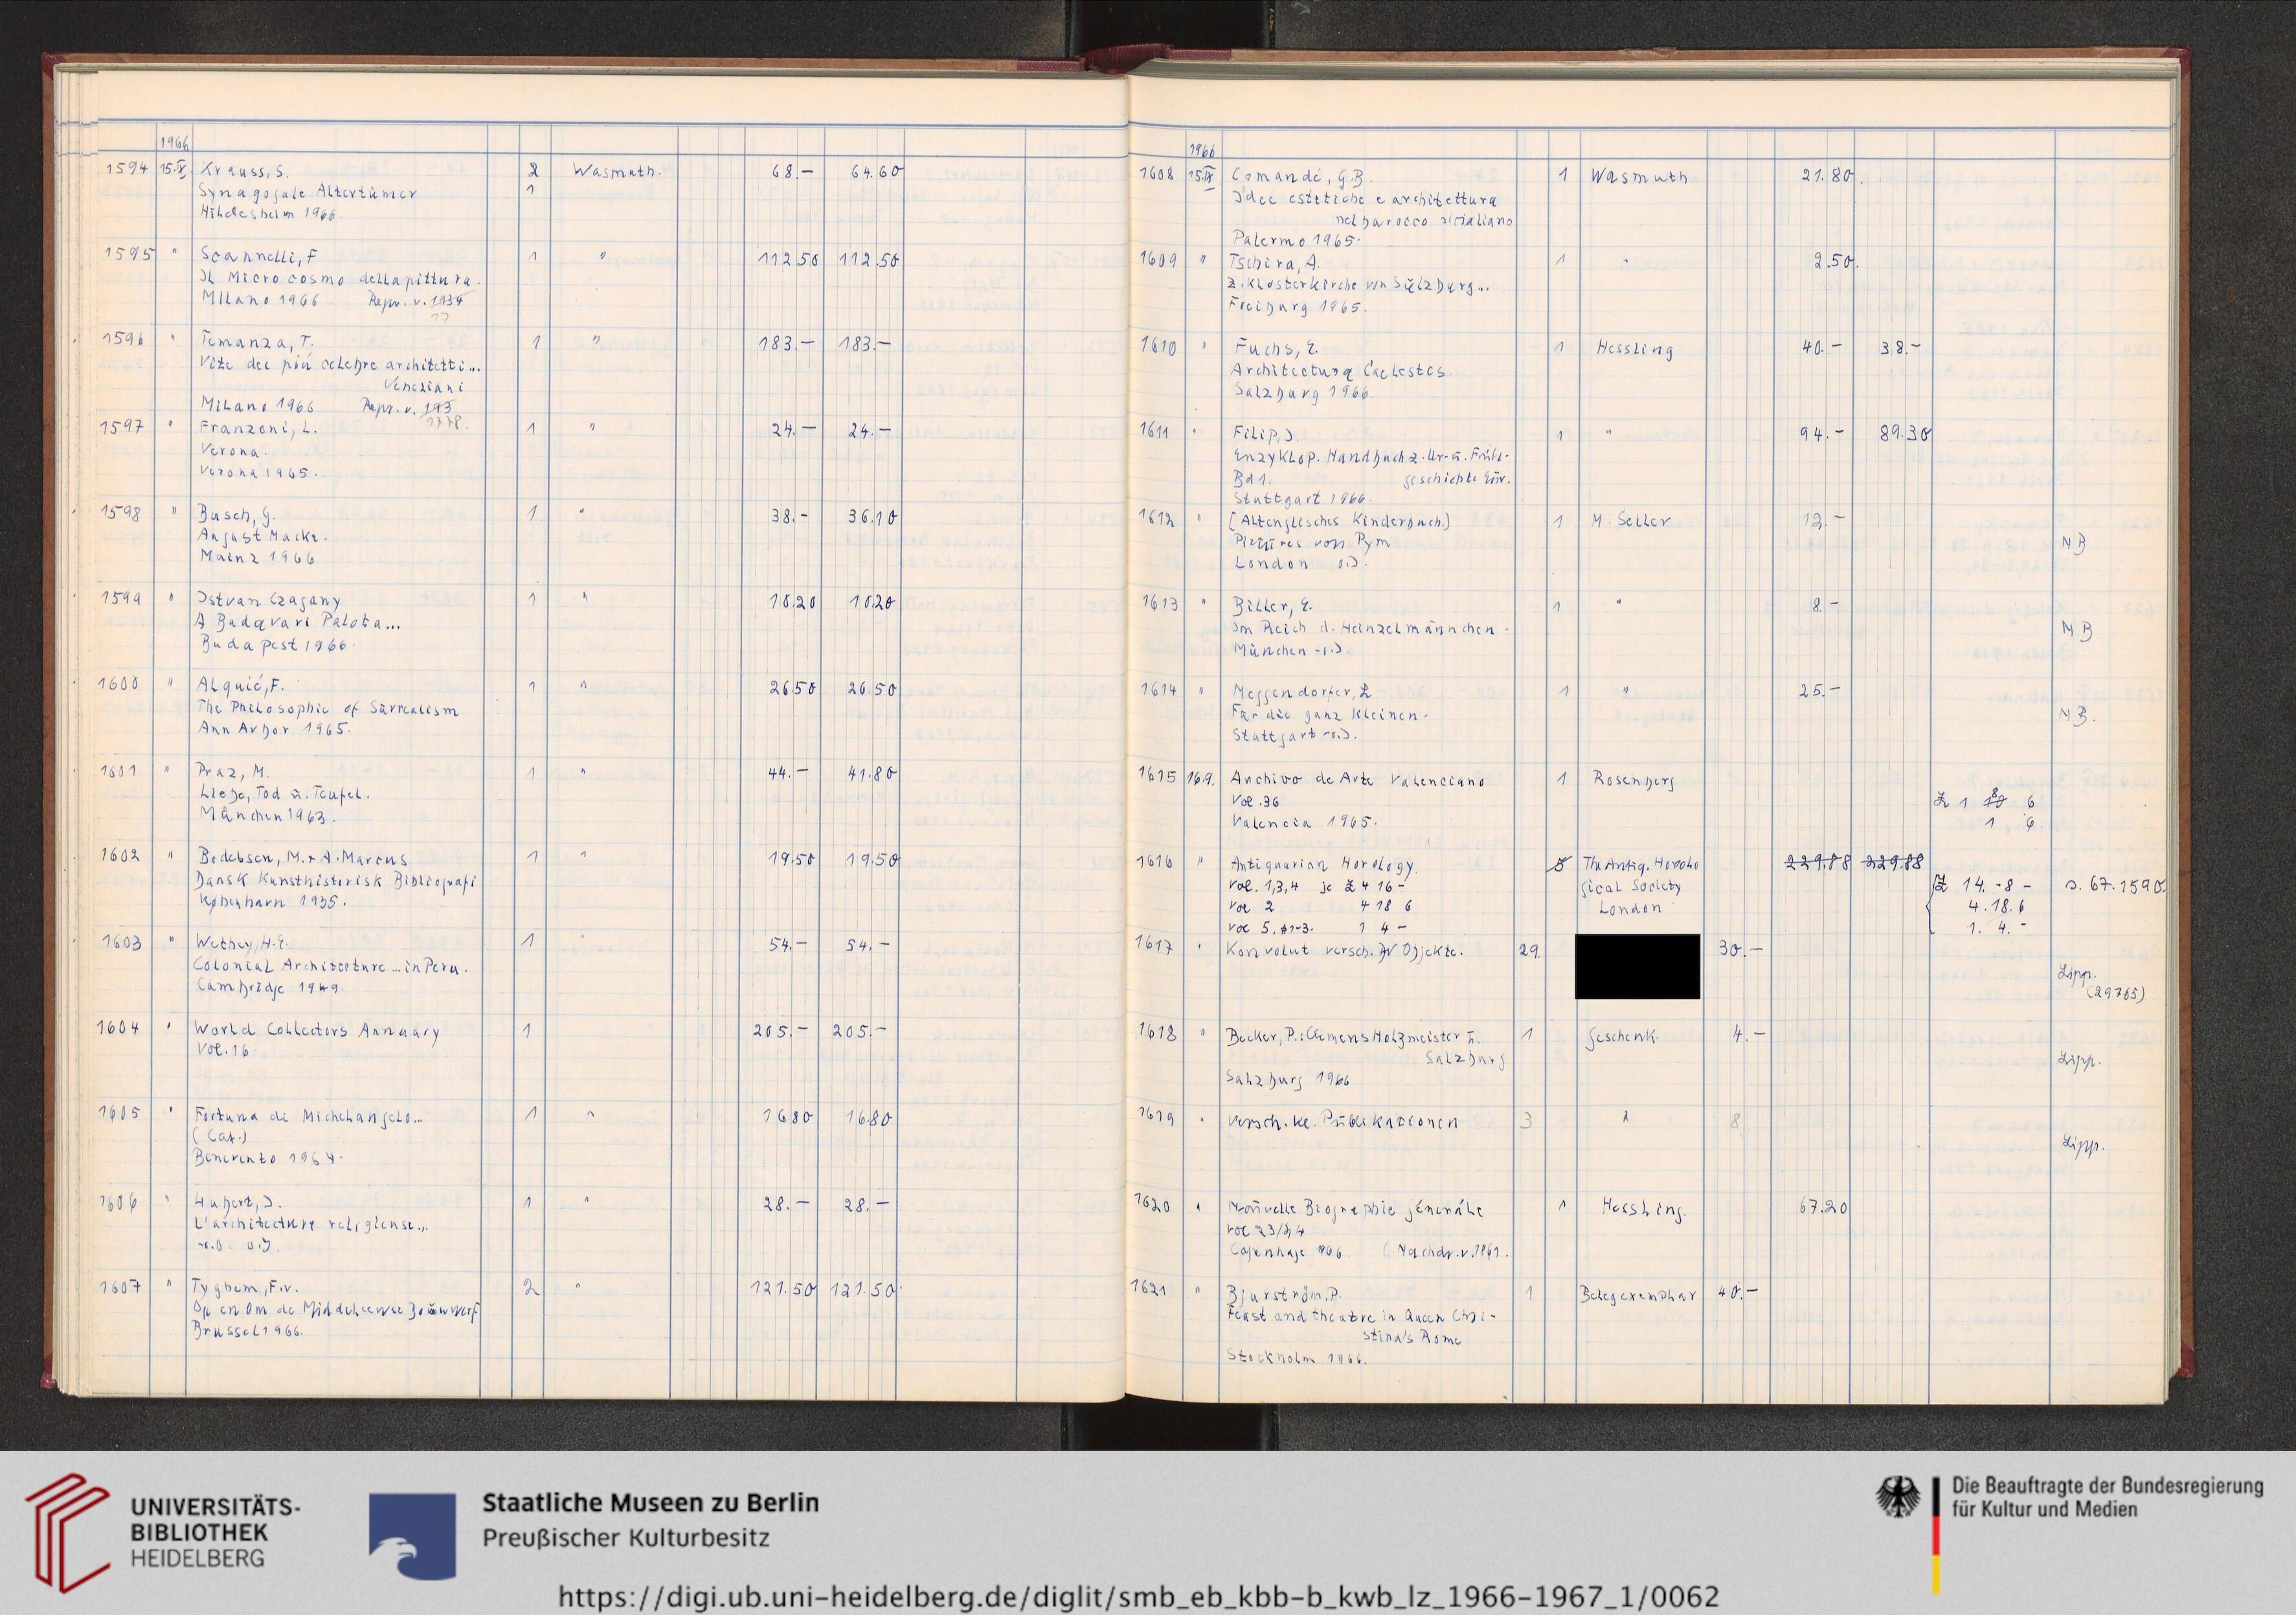 1966
1594 15.IX. Krauss, S. 2 Wasmuth. 68.- 64.60
Synagogale Altertümer 1
Hildesheim 1966
1595 " Scannelli, F 1 " 112.50 112.50
Il Microcosmo della pittura.
Milano 1966 Repr. v. 1934
17
1596 " Temanza, T. 1 " 183.- 183.-
Vite dei più celebre architetti...
Veneziani
Milano 1966 Repr. v. 193
1778.
1597 " Franzoni, L. 1 " 24.- 24.-
Verona.
Verona 1965.
1598 " Busch, G. 1 " 38.- 36.10
August Macke.
Mainz 1966
1599 " Istvan Czagany 1 " 10.20 10.20
A Budavari Palota...
Budapest 1966.
1600 " Alquié, F. 1 " 26.50 26.50
The Philosophie of Surrealism
Ann Arbor 1965.
1601 " Praz, M. 1 " 44.- 41.80
Liebe, Tod u. Teufel.
München 1963.
1602 " Bodelsen, M. + A. Marcus 1 " 19.50 19.50
Dansk Kunsthistorisk Bibliografi
København 1935.
1603 " Wethey, H.E. 1 " 54.- 54.-
Colonial Architecture ... in Peru.
Cambridge 1949.
1604 " World Collectors Annuary 1 205.- 205.-
Vol. 16.
1605 " Fortuna di Michelangelo... 1 " 16.80 16.80
(Cat.)
Benevento 1964.
1606 " Hubert, J. 1 " 28.- 28.-
L'architecture religieuse...
o.O. o.J.
1607 " Tyghem, F.v. 2 " 121.50 121.50
Op en Om de Middeleeuwse Bouwwerf
Brussel 1966.
1966
1608 15.IX Comandé, G.B. 1 Wasmuth 21.80
Idee estetiche e architettura
nel barocco sicialiano
Palermo 1965.
1609 " Tschira, A. 1 " 2.50
z. Klosterkirche von Sulzburg...
Freiburg 1965.
1610 " Fuchs, E. 1 Hessling 40.- 38.-
Architectura Caelestes.
Salzburg 1966.
1611 " Filip, J. 1 " 94.- 89.30
Enzyklop. Handbuch z. Ur- u. Früh-
Bd 1. geschichte Eur.
Stuttgart 1966.
1612 " [Altenglisches Kinderbuch.] 1 M. Seller 12.-
Pictures von Pym MB
London o.J.
1613 " Biller, E. 1 " 8.-
Im Reich d. Heinzelmännchen. MB
München o.J.
1614 " Meggendorfer, L 1 " 25.-
Für die ganz Kleinen. MB.
Stuttgart o.J.
1615 16.9. Archivo de Arte Valenciano 1 Rosenberg
Vol. 36 £ 1 10 8 6
Valencia 1965. 1 6
1616 " Antiquarian Horology. 5 The Antiq. Horolo 229.88 229.88
Vol. 1,3,4 je £ 4 16 - gical Society £ 14.-8 - s. 67.1590.
Vol 2 4 18 6 London 4.18.6
Vol 5, 1-3. 1 4 - 1. 4. -
1617 " Konvolut versch. AV Objekte. 29. 30.-
Lipp.
(29765)
1618 " Becker, P.: Clemens Holzmeister u. 1 Geschenk. 4.-
Salzburg Lipp.
Salzburg 1966
1619 " versch. kl. Publikationen 3 " 8
Lipp.
1620 " Nouvelle Biographie générale 1 Hessling. 67.20
Vol 23/24
Copenhage 1966 (Nachdr. v. 1861.
1621 " Bjurström, P. 1 Belegexemplar 40.-
Feast and theatre in Queen Chri-
stina's Rome
Stockholm 1966.
UNIVERSITÄTS-
BIBLIOTHEK
HEIDELBERG
Staatliche Museen zu Berlin
Preußischer Kulturbesitz
Die Beauftragte der Bundesregierung
für Kultur und Medien
https://digi.ub.uni-heidelberg.de/diglit/smb_eb_kbb-b_kwb_lz_1966-1967_1/0062